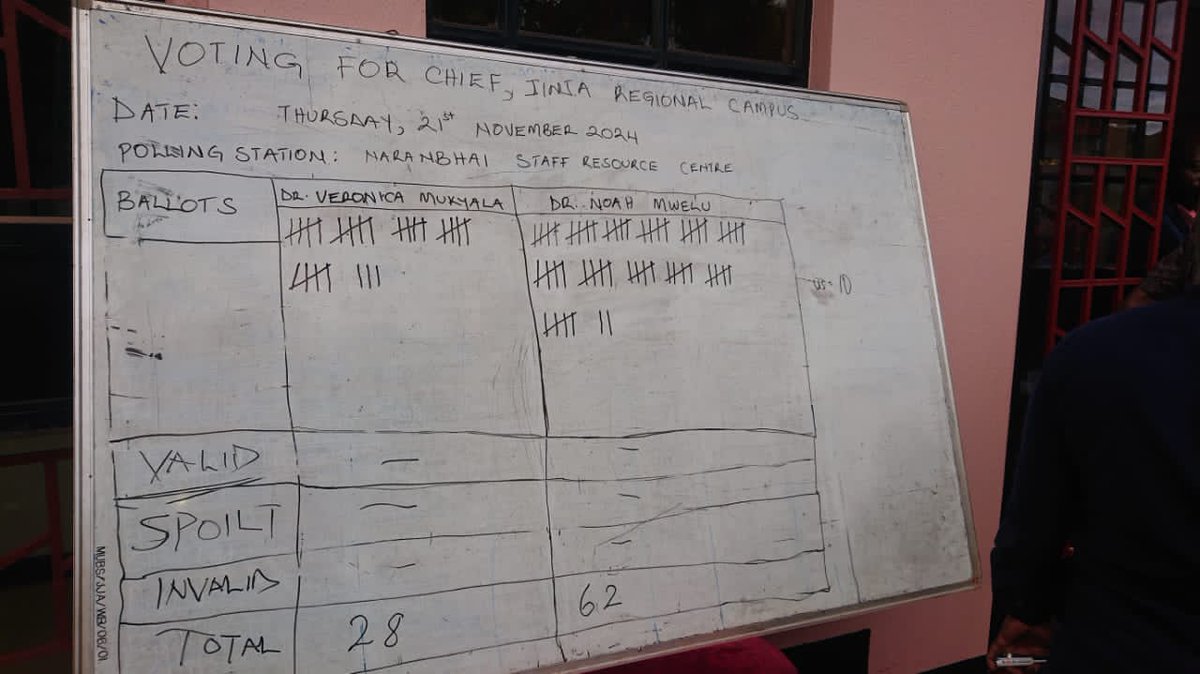 VOTING FOR CHIEF, JINJA REGIONAL CAMPUS
DATE: THURSDAY, 21st NOVEMBER 2024
POLLING STATION: NARANBHAI STAFF RESOURCE CENTRE
BALLOTS DR. VERONICA MUKYALA DR. NOAH MWELU
VALID — —
SPOILT — —
INVALID — —
TOTAL 28 62
MUBS/JJA/WB/08/01